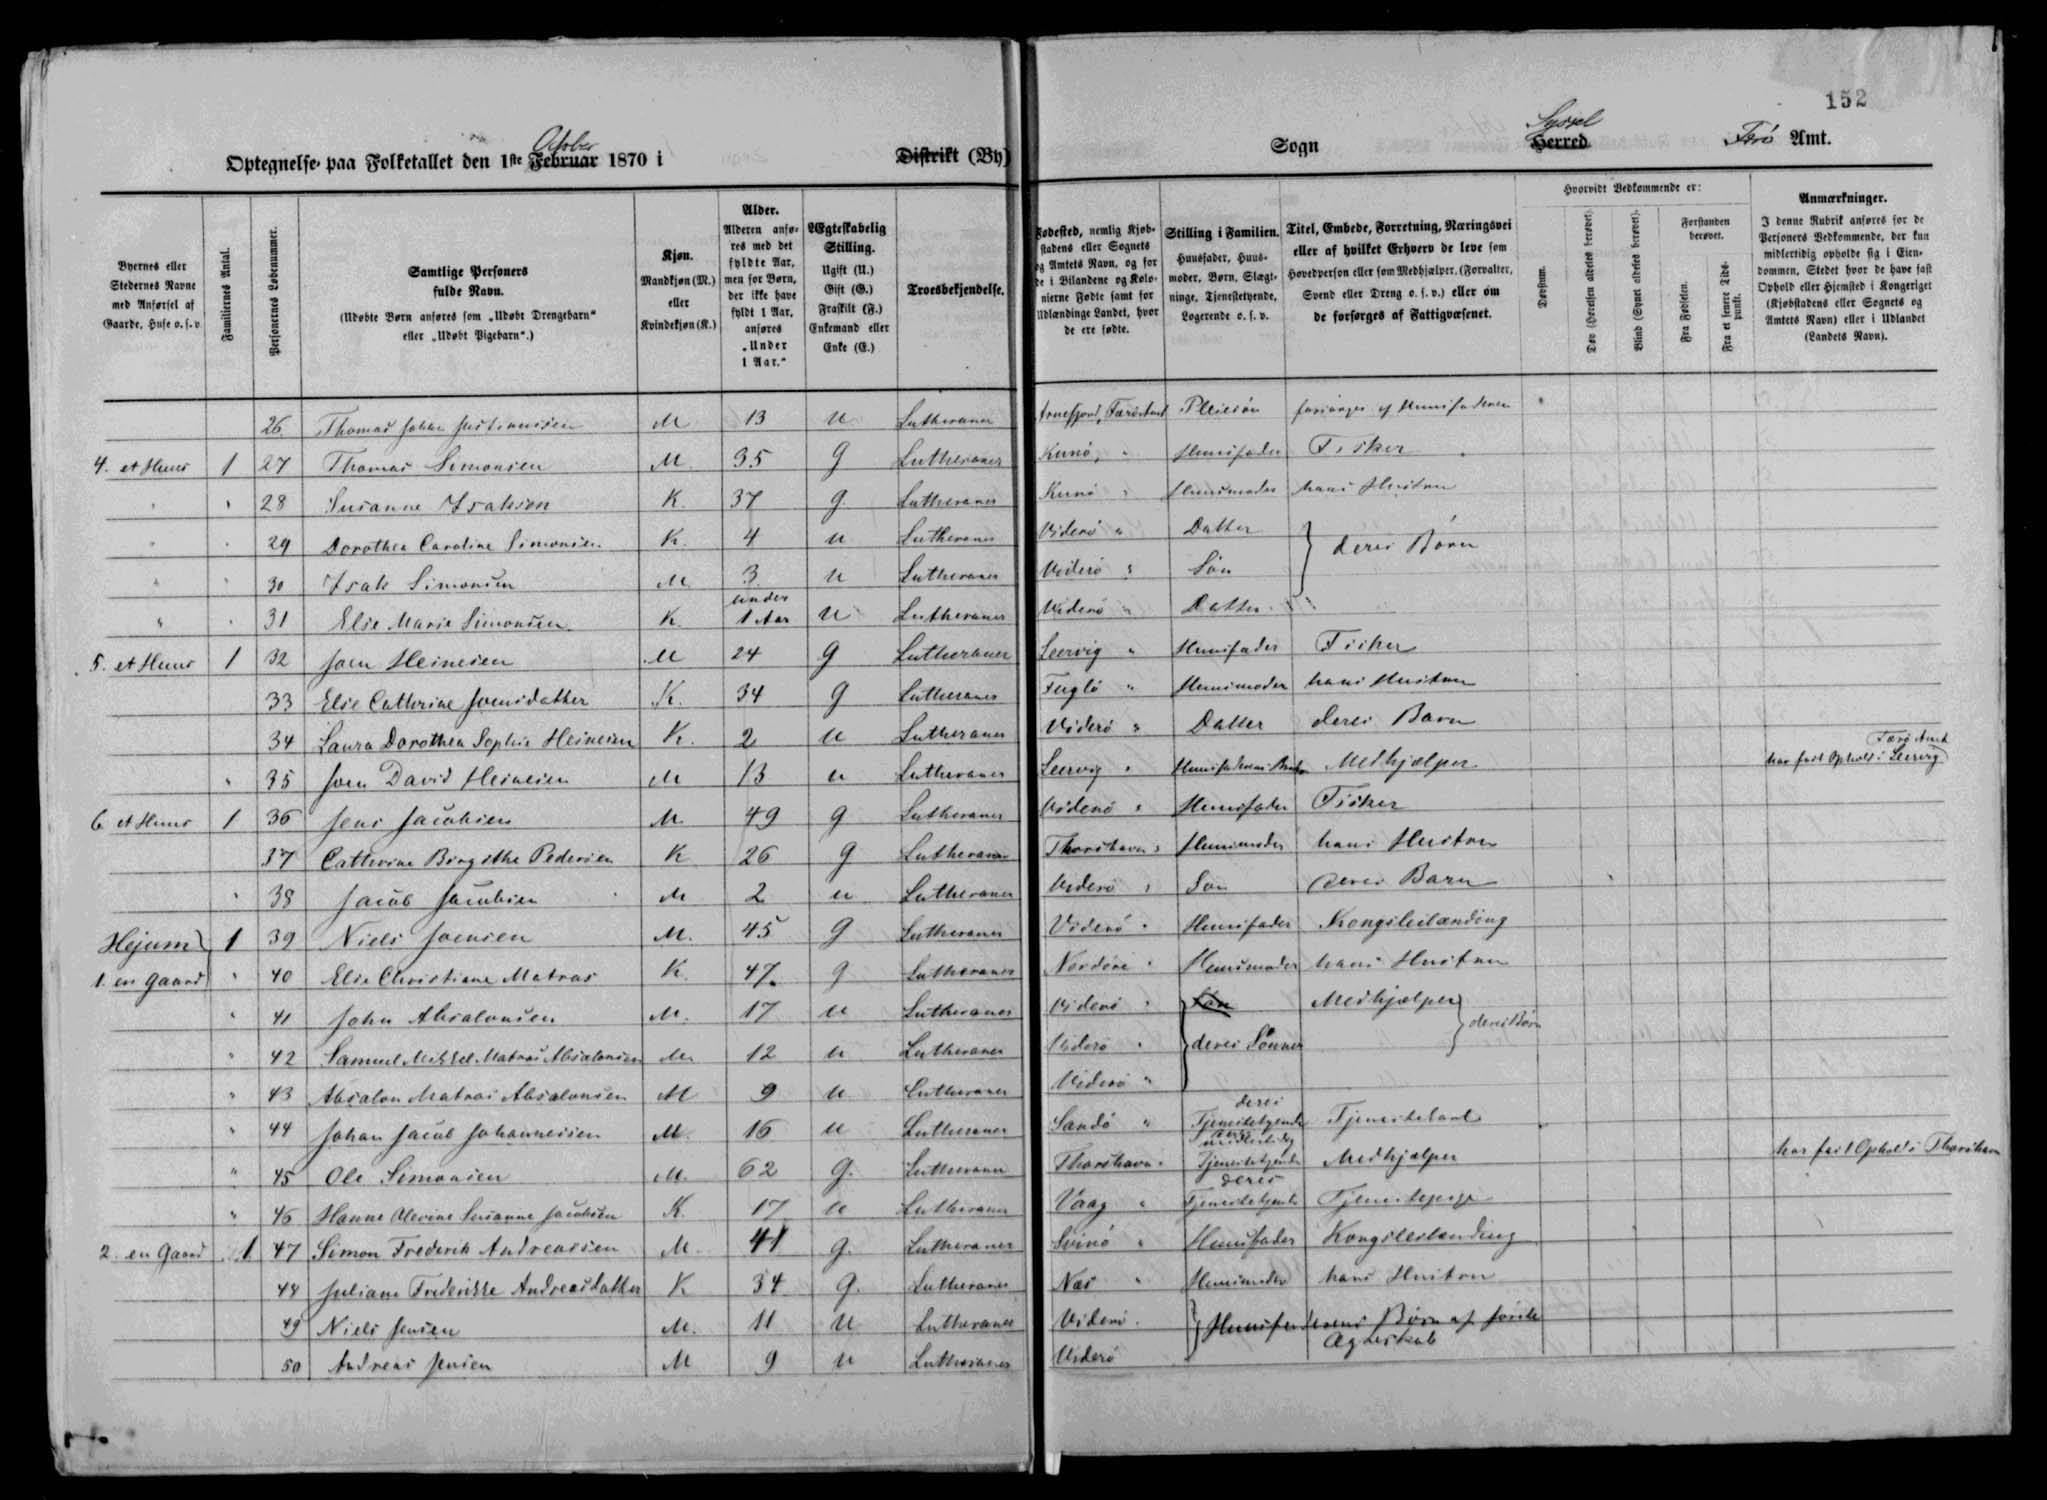 152
October
Optegnelse paa Folketallet den 1ste Februar 1870 i Distrikt (By)
Sogn Syssel Herred Færö Amt.
Byernes eller Stedernes Navne med Anførsel af Gaarde, Huse o. s. v.
Familiernes Antal.
Personernes Løbenummer.
Samtlige Personers fulde Navn.
(Udøbte Børn anføres som „Udøbt Drengebarn“ eller „Udøbt Pigebarn“.)
Kjøn. Mandkjøn (M.) eller Kvindekjøn (K.)
Alder. Alderen anføres med det fyldte Aar, men for Børn, der ikke have fyldt 1 Aar, anføres „Under 1 Aar.“
Ægteskabelig Stilling. Ugift (U.) Gift (G.) Fraskilt (F.) Enkemand eller Enke (E.)
Troesbekjendelse.
Fødested, nemlig Kjøbstadens eller Sognets og Amtets Navn, og for de i Bilandene og Kolonierne Fødte samt for Udlændinge Landet, hvor de ere fødte.
Stilling i Familien. Huusfader, Huusmoder, Børn, Slægtninge, Tjenestetyende, Logerende o. s. v.
Titel, Embede, Forretning, Næringsvei eller af hvilket Erhverv de leve som Hovedperson eller som Medhjælper, (Forvalter, Svend eller Dreng o. s. v.) eller om de forsørges af Fattigvæsenet.
Hvorvidt Vedkommende er:
Døvstum.
Døv (Hørelsen aldeles berøvet).
Blind (Synet aldeles berøvet).
Forstanden berøvet.
Fra Fødselen.
Fra et senere Tidspunkt.
Anmærkninger.
I denne Rubrik anføres for de Personers Vedkommende, der kun midlertidig opholde sig i Eiendommen, Stedet hvor de have fast Ophold eller Hjemsted i Kongeriget (Kjøbstadens eller Sognets og Amtets Navn) eller i Udlandet (Landets Navn).
26. Thomas Johan Justinussen M 13 u Lutheraner Arnefjord, Færö Amt Pleiesön forsörges af Huusfaderen
4. et Huus 1 27 Thomas Simonsen M. 35 g Lutheraner Kunö, " Huusfader Fisker
" " 28 Susanne Isaksen K. 37 g. Lutheraner Kunö " Huusmoder hans Hustru
" " 29 Dorothea Caroline Simonsen K. 4 u Lutheraner Viderö " Datter } deres Børn
" " 30 Isak Simonsen M. 3 u Lutheraner Viderö " Sön
" " 31 Else Marie Simonsen K. under 1 Aar u Lutheraner Viderö " Datter " "
5. et Huus 1 32 Joen Heinesen M 24 g Lutheraner Leervig " Huusfader Fisker
33 Else Cathrine Joensdatter K. 34 g Lutheraner Fuglö " Huusmoder hans Hustru
34 Laura Dorothea Sophie Heinesen K. 2 u Lutheraner Viderö " Datter deres Barn
" 35 Joen David Heinesen M 13 u Lutheraner Leervig " Huusfaderens Broder Medhjælper har fast Ophold i Leervig Færö Amt
6 et Huus 1 36 Jens Jacobsen M. 49 g Lutheraner Viderö " Huusfader Fisker
37 Cathrine Birgithe Pedersen K 26 g Lutheraner Thorshavn " Huusmoder hans Hustru
" 38 Jacob Jacobsen M 2 u Lutheraner Viderö " Sön deres Barn
Hejum } 1 39 Niels Joensen M. 45 g Lutheraner Viderö " Huusfader Kongsleilænding
1. en Gaard " 40 Else Christiane Matras K. 47. g Lutheraner Nordöre " Huusmoder hans Hustru
" 41 John Absalonsen M. 17 u Lutheraner Viderö " Sön Medhjælper } deres Børn
" 42 Samuel Mikkel Matras Absalonsen M. 12 u Lutheraner Viderö " } deres Sönner
" 43 Absalon Matras Absalonsen M 9 u Lutheraner Viderö "
" 44 Johan Jacob Johannessen M. 16 u Lutheraner Sandö " deres Tjenestetyende Tjenestekarl
" 45 Ole Simonsen M. 62 g. Lutheraner Thorshavn " midlertidig Tjenestetyende Medhjælper har fast Ophold i Thorshavn
" 46 Hanne Olevine Susanne Jacobsen K. 17 u Lutheraner Vaag " deres Tjenestetyende Tjenestepige
2. en Gaard 1. 47 Simon Frederik Andreassen M. 41 g. Lutheraner Svinö " Huusfader Kongsleilænding
48 Juliane Frederikke Andreasdatter K 34 g. Lutheraner Næs " Huusmoder hans Hustru
49 Niels Jensen M. 11 u Lutheraner Viderö. } Huusfaderens Børn af förste Ægteskab
50 Andreas Jensen M 9 u Lutheraner Viderö